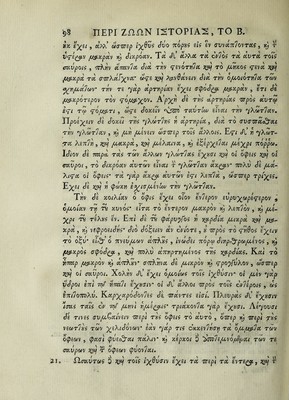 98 ΠΕΡΙ ΖΩΩΝ ΙΣΤΟΡΙΑΣ, ΤΟ Β.
οὐκ ἔχει, ἀλλ' ὥσπερ ἰχθῦς δύο πόρους εἰς ἓν συνάπτοντας, καὶ τὴν
ὑστέραν μακρὰν καὶ δικρόαν. Τὰ δ' ἄλλα τὰ ἐντὸς τὰ αὐτὰ τοῖς
σαύροις, πλὴν ἅπαντα διὰ τὴν στενότητα καὶ τὸ μῆκος στενὰ καὶ
μακρὰ τὰ σπλάγχνα· ὥστε καὶ λανθάνειν διὰ τὴν ὁμοιότητα τῶν
σχημάτων· τήν τε γὰρ ἀρτηρίαν ἔχει σφόδρα μακρὰν, ἔτι δὲ
μακρότερον τὸν στόμαχον. Ἀρχὴ δὲ τῆς ἀρτηρίας πρὸς αὐτῷ
ἐστὶ τῷ στόματι, ὥστε δοκεῖν ὑπὸ ταύτην εἶναι τὴν γλῶτταν.
Προέχειν δὲ δοκεῖ τῆς γλώττης ἡ ἀρτηρία, διὰ τὸ συσπᾶσθαι
τὴν γλῶτταν, καὶ μὴ μένειν ὥσπερ τοῖς ἄλλοις. Ἔστι δ' ἡ γλῶτ-
τα λεπτὴ, καὶ μακρὰ, καὶ μέλαινα, καὶ ἐξέρχεται μέχρι πόρρω.
Ἴδιον δὲ παρὰ τὰς τῶν ἄλλων γλώττας ἔχουσι καὶ οἱ ὄφεις καὶ οἱ
σαῦροι, τὸ δικρόαν αὐτῶν εἶναι τὴν γλῶτταν ἄκραν· πολὺ δὲ μά-
λιστα οἱ ὄφεις· τὰ γὰρ ἄκρα αὐτῶν ἐστὶ λεπτὰ, ὥσπερ τρίχες.
Ἔχει δὲ καὶ ἡ φώκη ἐσχισμένην τὴν γλῶτταν.
Τὴν δὲ κοιλίαν ὁ ὄφις ἔχει οἷον ἔντερον εὐρυχωρέστερον,
ὁμοίαν τῇ τοῦ κυνός· εἶτα τὸ ἔντερον μακρὸν καὶ λεπτὸν, καὶ μέ-
χρι τοῦ τέλους ἕν. Ἐπὶ δὲ τοῦ φάρυγγος ἡ καρδία μικρὰ καὶ μα-
κρὰ, καὶ νεφροειδής· διὸ δόξειεν ἂν ἐνίοτε, οὐ πρὸς τὸ στῆθος ἔχειν
τὸ ὀξύ· εἶθ' ὁ πνεύμων ἁπλοῦς, ἰνώδει πόρῳ διηρθρωμένος, καὶ
μακρὸς σφόδρα, καὶ πολὺ ἀπηρτημένος τῆς καρδίας. Καὶ τὸ
ἧπαρ μακρὸν καὶ ἁπλοῦν· σπλῆνα δὲ μικρὸν καὶ στρογγύλον, ὥσπερ
καὶ οἱ σαῦροι. Χολὴν δ' ἔχει ὁμοίως τοῖς ἰχθύσιν· οἱ μὲν γὰρ
ὕδροι ἐπὶ τῷ ἥπατι ἔχουσιν· οἱ δ' ἄλλοι πρὸς τοῖς ἐντέροις, ὡς
ἐπιτοπολύ. Καρχαρόδοντες δὲ πάντες εἰσί. Πλευρὰς δ' ἔχουσιν
ὅσας ταῖς ἐν τῷ μηνὶ ἡμέραις· τριάκοντα γὰρ ἔχουσι. Λέγουσι
δέ τινες συμβαίνειν περὶ τοὺς ὄφεις τὸ αὐτὸ, ὅπερ καὶ περὶ τοὺς
νεοττοὺς τῶν χελιδόνων· ἐὰν γάρ τις ἐκκεντήσῃ τὰ ὄμματα τῶν
ὄφεων, φασὶ φύεσθαι πάλιν· καὶ κέρκοι δὲ ἀποτεμνόμεναι τῶν τε
σαύρων καὶ τῶν ὄφεων φύονται.
21. Ὡσαύτως δὲ καὶ τοῖς ἰχθύσιν ἔχει τὰ περὶ τὰ ἔντερα, καὶ τὴν